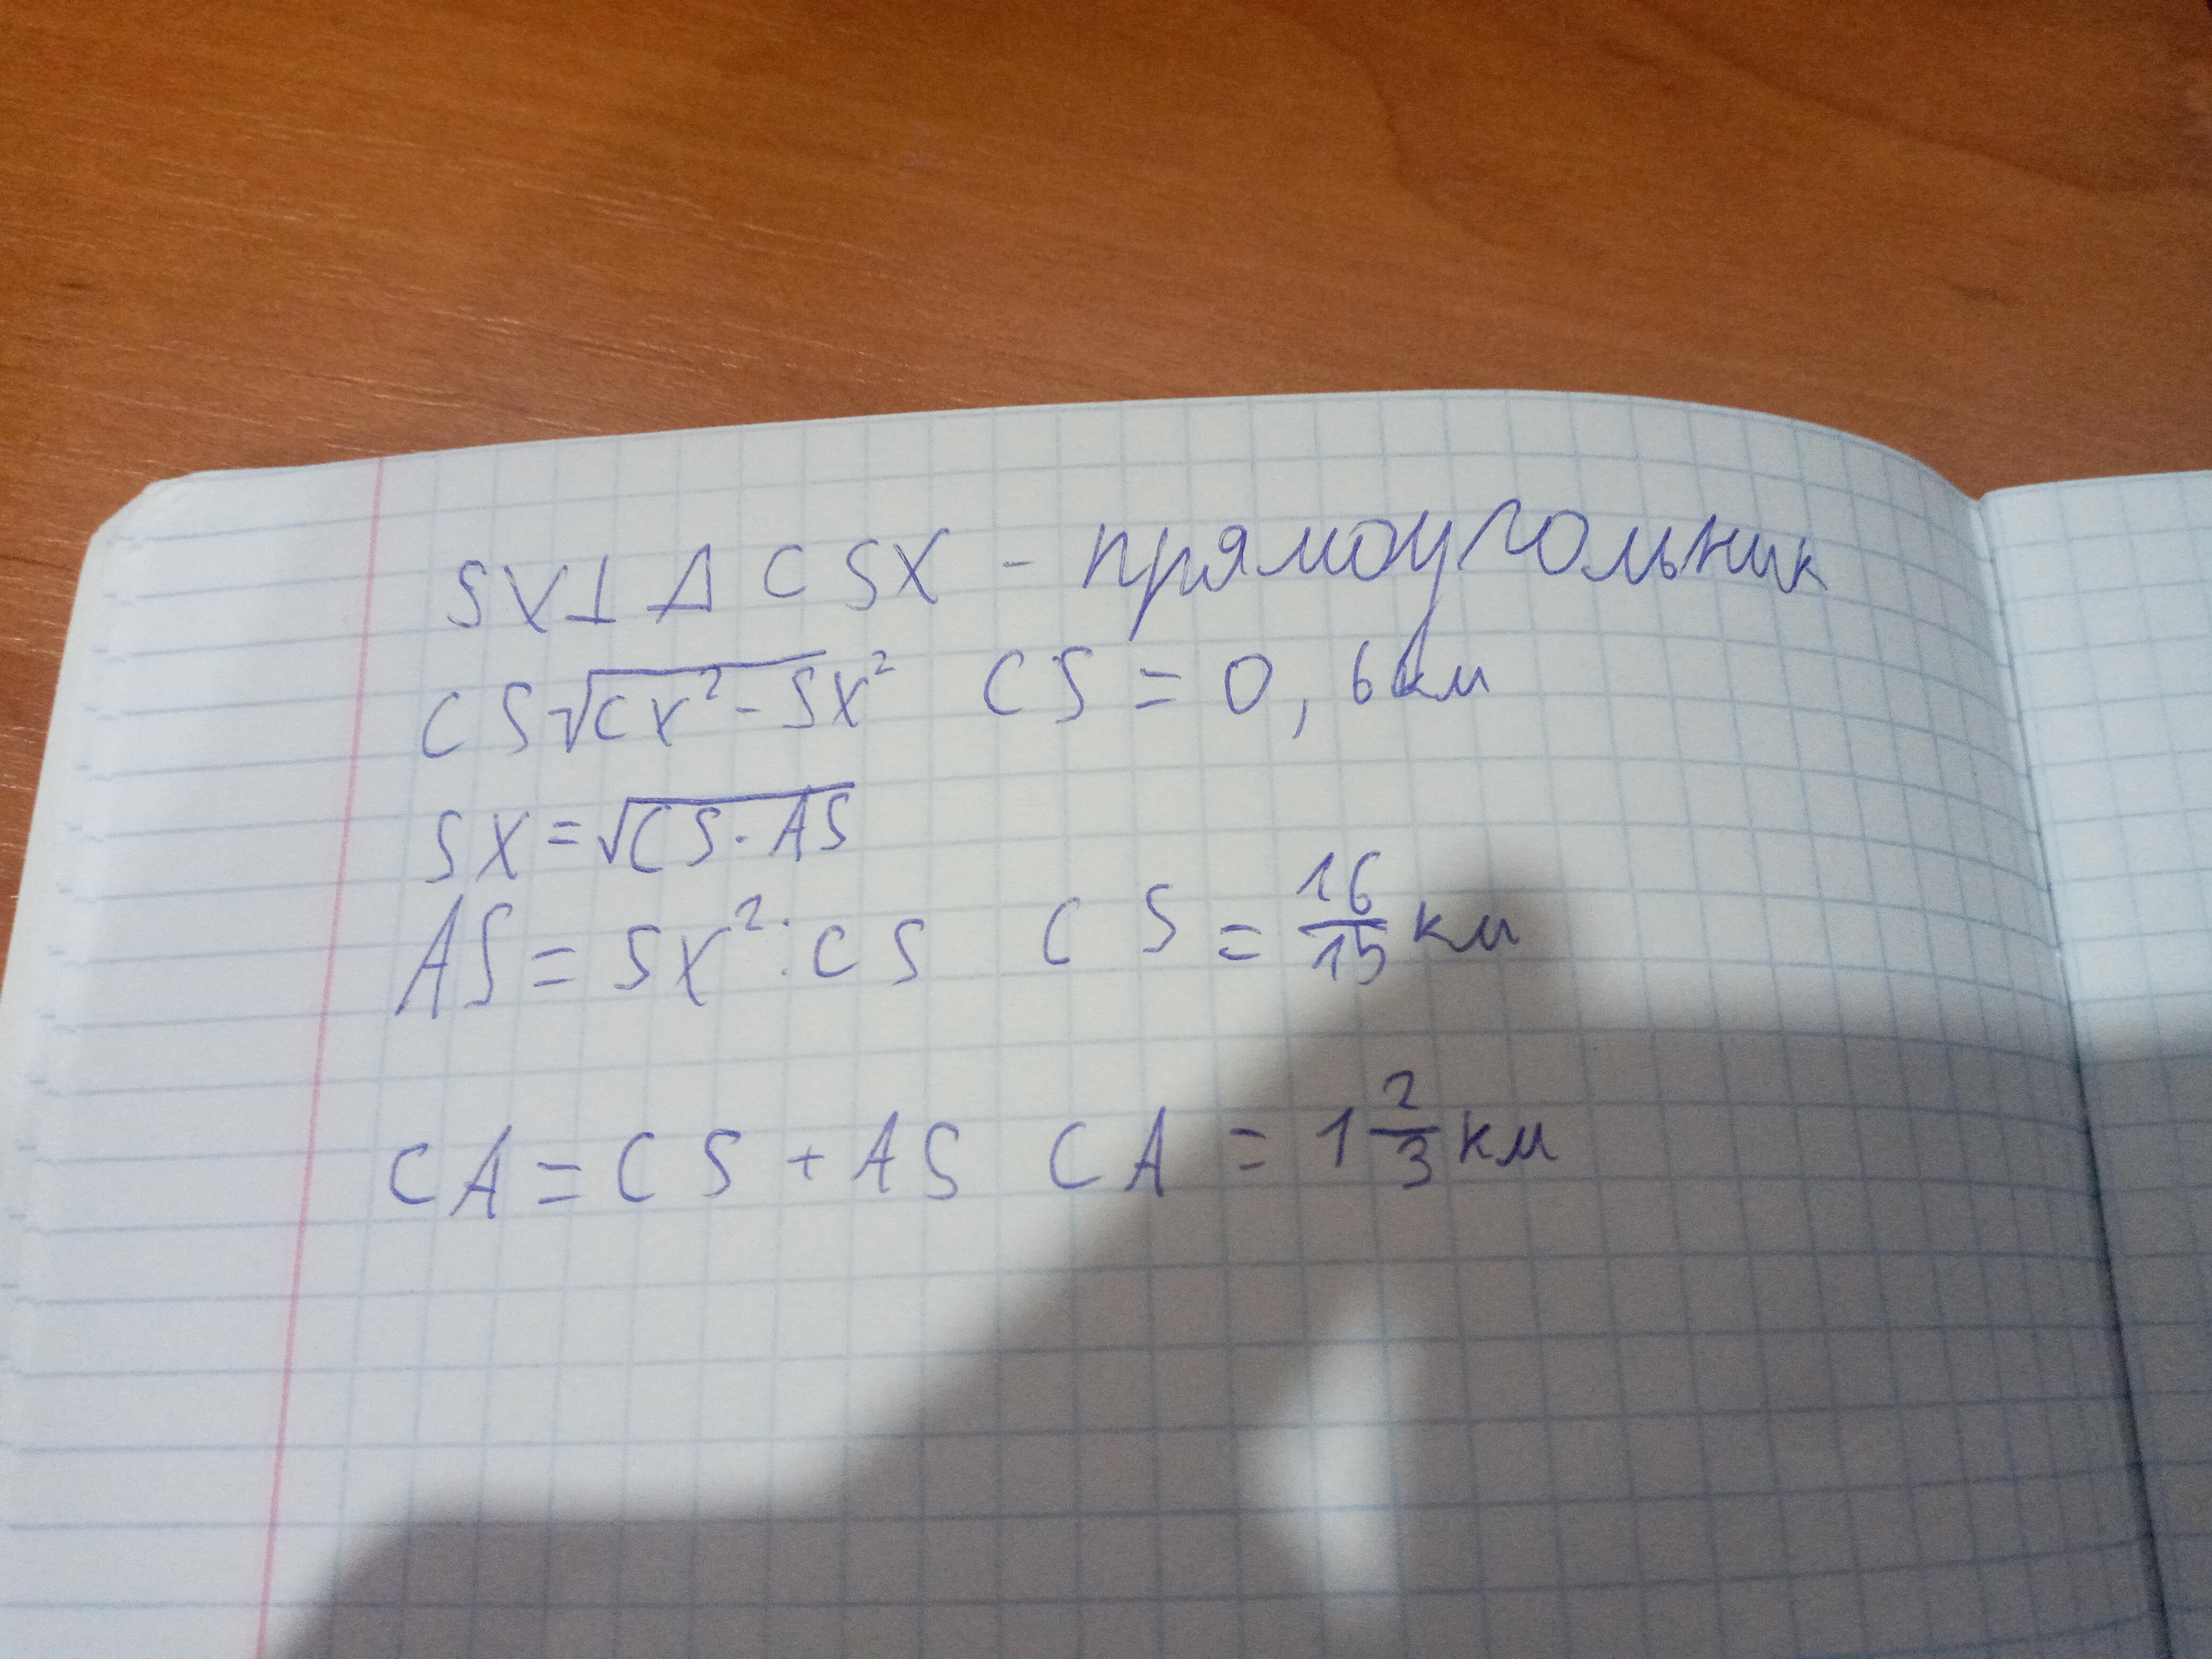 SX⊥ Δ CSX - прямоугольник
CS√CX²-SX² CS = 0,6км
SX=√CS·AS
AS=SX²:CS CS = 16/15 км
CA=CS+AS CA = 1 2/3 км